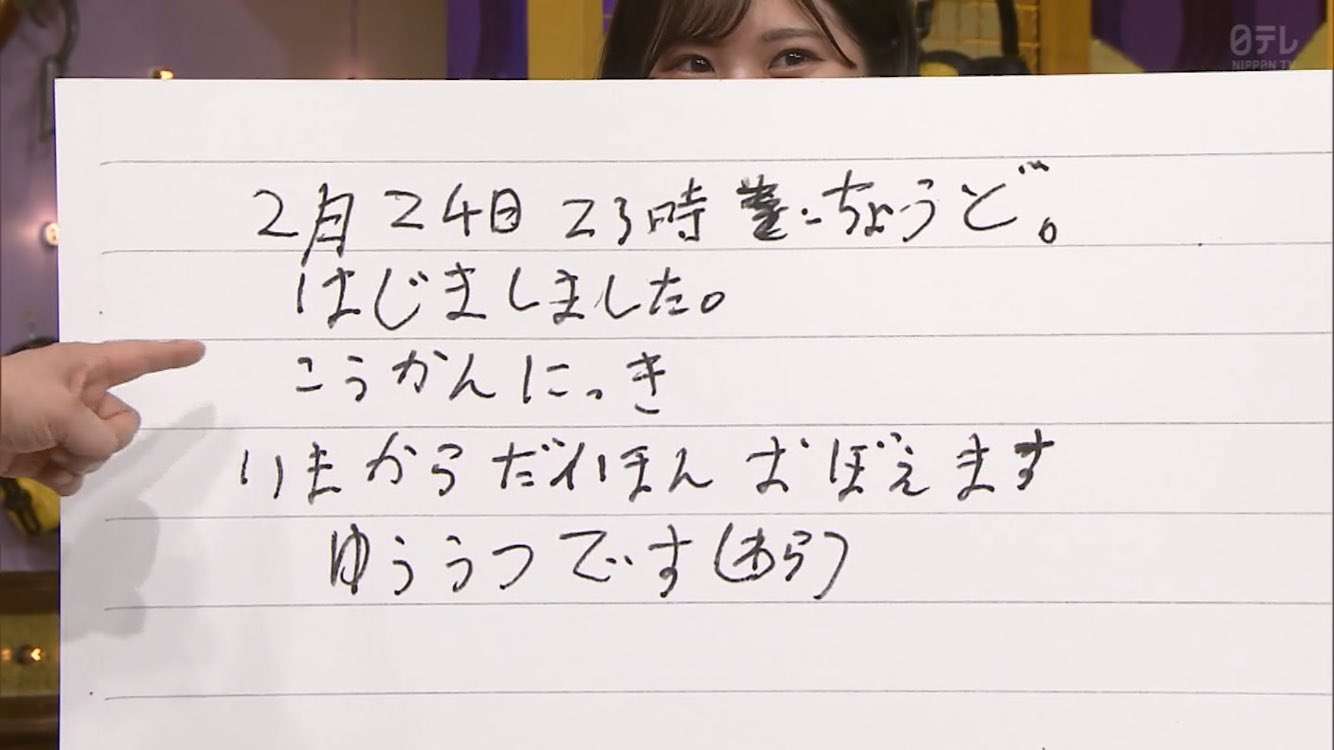 日テレ
NIPPON TV
2月24日 23時 ちょうど。
はじましました。
こうかんにっき
いまからだいほんおぼえます
ゆううつです(わら)